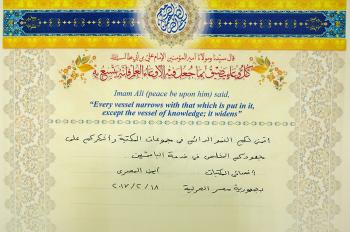 قال سيدنا ومولانا أمير المؤمنين الإمام علي بن أبي طالب
كل وعاء يضيق بما جعل فيه إلا وعاء العلم فإنه يتسع به
Imam Ali (peace be upon him) said,
"Every vessel narrows with that which is put in it,
except the vessel of knowledge; it widens"
أتمنى لكم التميز الدائم في مجموعات المكتبة وأشكركم على
مجهودكم المخلص في خدمة الباحثين
أخصائي المكتبات أيمن المصري
جمهورية مصر العربية ٢٠١٧/٢/١٨